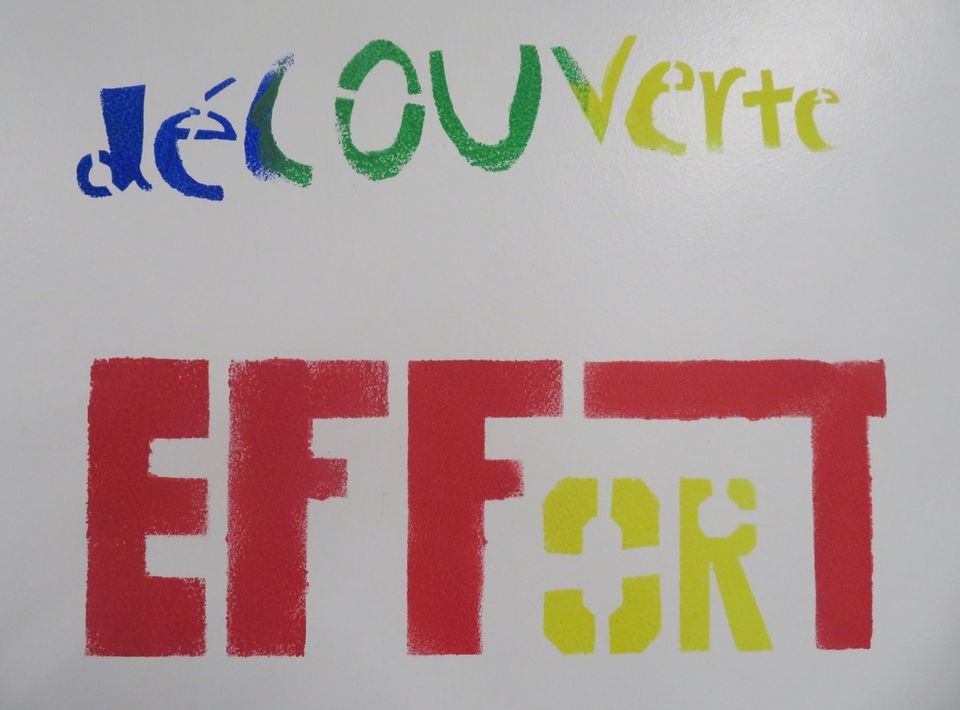 déCOUVerte
EFFORT